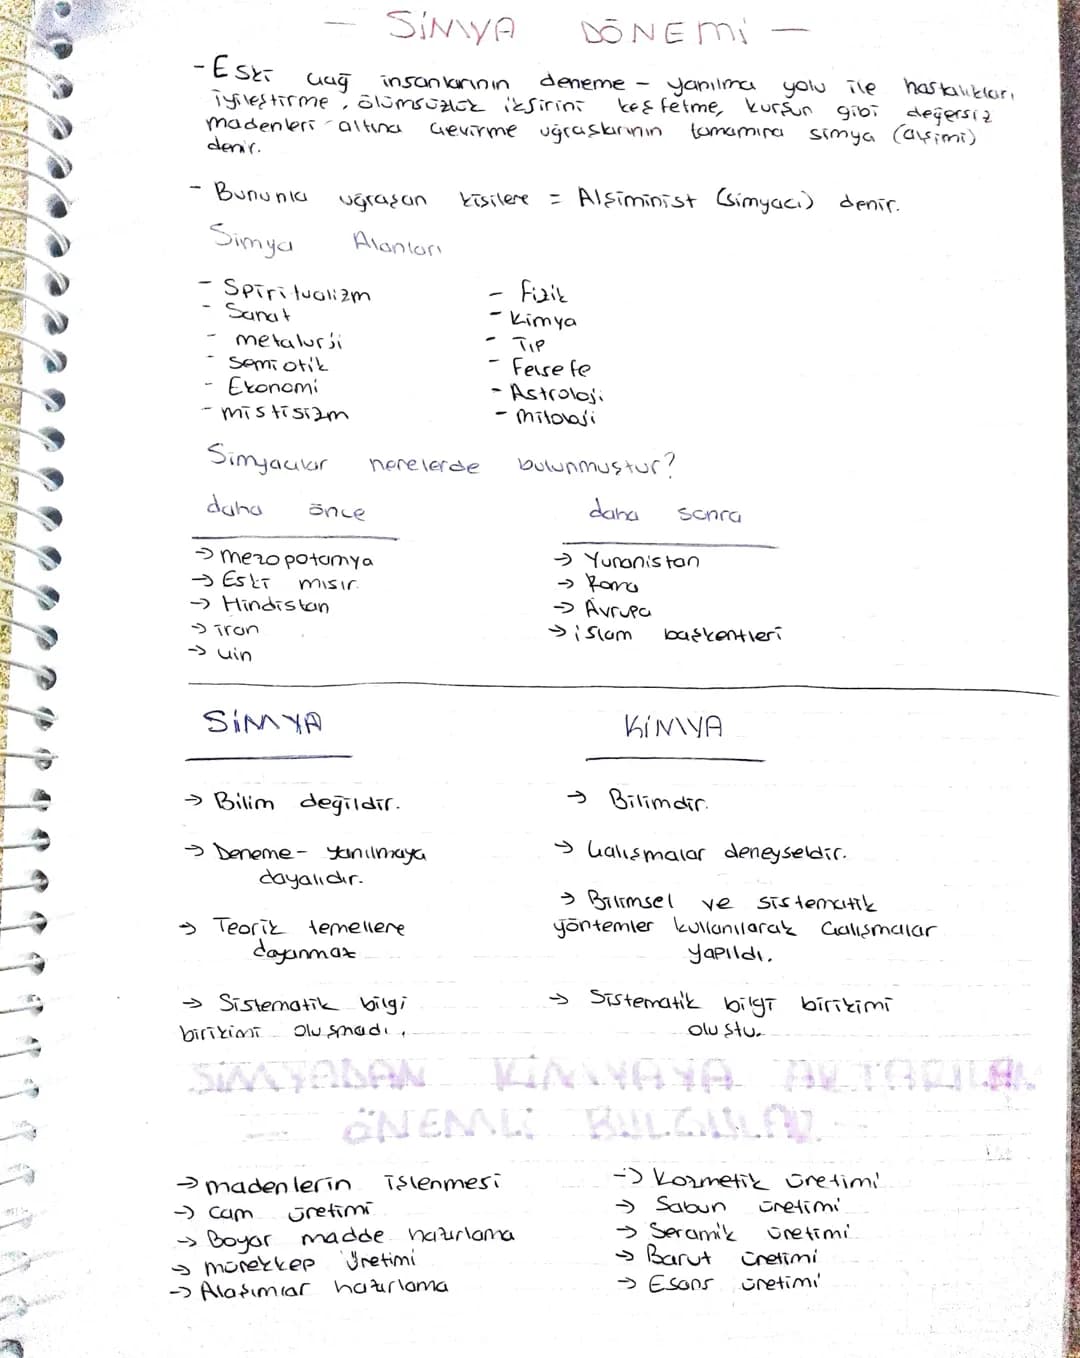 - SİMYA DÖNEMİ -
- Eski çağ insanlarının deneme - yanılma yolu ile hastalıkları
iyileştirme, ölümsüzlük iksirini keşfetme, kurşun gibi değersiz
madenleri altına çevirme uğraşlarının tamamına simya (alşimi)
denir.
- Bununla uğraşan kişilere = Alşiminist (simyacı) denir.
Simya Alanları
- Spiritualizm
- Sanat
- metalurji
- Semiotik
- Ekonomi
- mistisizm
- Fizik
- Kimya
- Tıp
- Felsefe
- Astroloji
- mitoloji
Simyacılar nerelerde bulunmuştur?
daha önce
→ mezopotamya
→ Eski mısır
→ Hindistan
→ iran
→ çin
daha sonra
→ Yunanistan
→ Roma
→ Avrupa
→ islam başkentleri
SİMYA
→ Bilim değildir.
→ Deneme - yanılmaya
dayalıdır.
→ Teorik temellere
dayanmaz
→ Sistematik bilgi
birikimi oluşmadı.
KİMYA
→ Bilimdir.
→ Çalışmalar deneyseldir.
→ Bilimsel ve sistematik
yöntemler kullanılarak çalışmalar
yapıldı.
→ Sistematik bilgi birikimi
oluştu.
SİMYADAN KİMYAYA AKTARILAN
- ÖNEMLİ BULGULAR -
→ madenlerin işlenmesi
→ cam üretimi
→ Boyar madde hazırlama
→ mürekkep üretimi
→ Alaşımlar hazırlama
→ Kozmetik üretimi
→ Sabun üretimi
→ Seramik üretimi
→ Barut üretimi
→ Esans üretimi